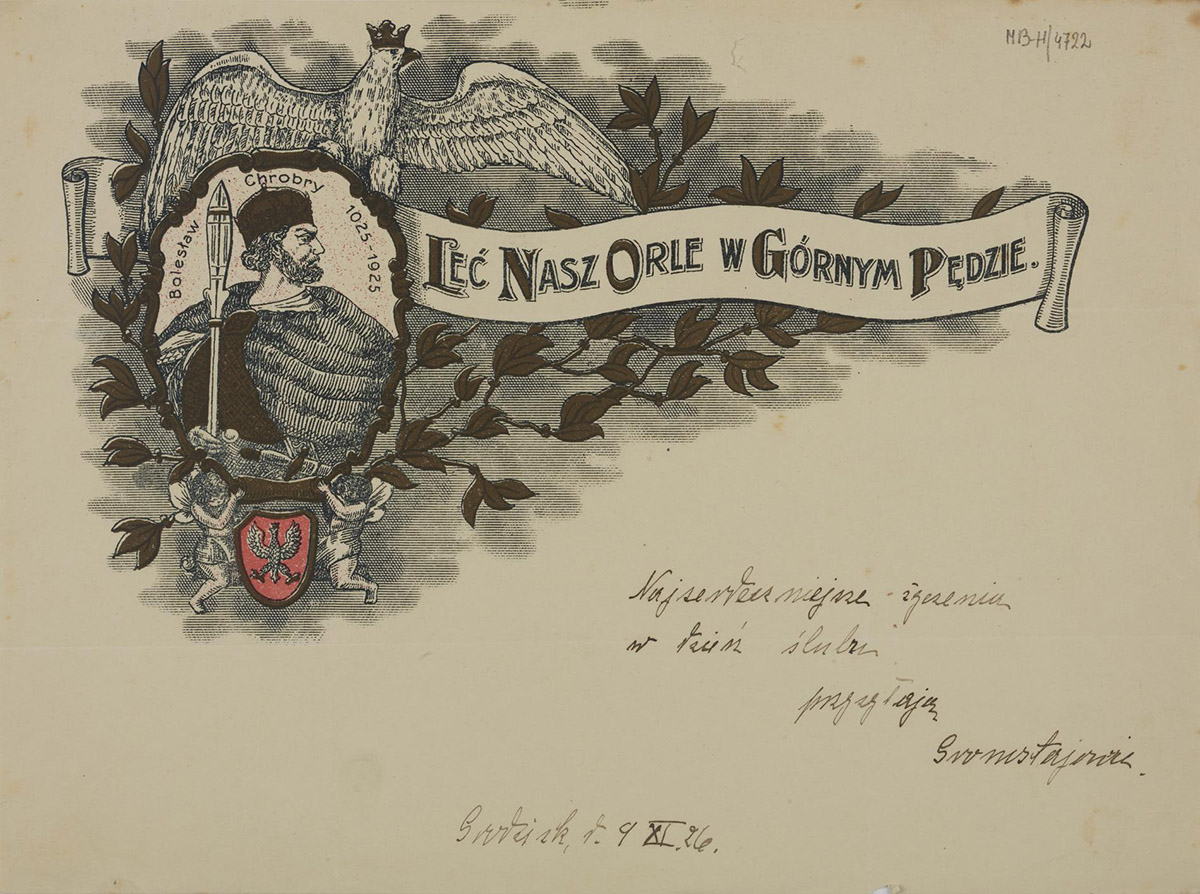 MB-H/4722
Bolesław Chrobry 1025-1925
LEĆ NASZ ORLE W GÓRNYM PĘDZIE.
Najserdeczniejsze życzenia
w dzień ślubu
przesyłają
Grodzisk, d. 9 XI. 26.